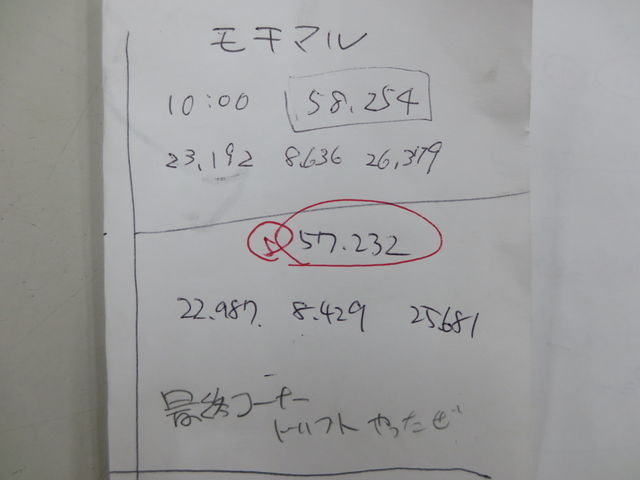 モテマル
10:00 58.254
23,192 8.636 26,379
57.232
22.987. 8.429 25.681
最終コーナー
ドリフトやったぜ